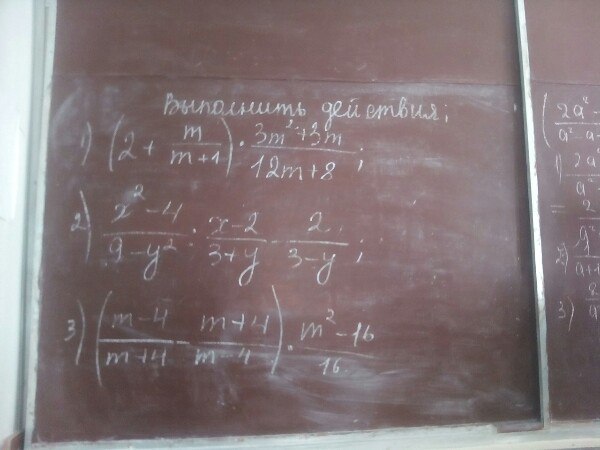 Выполнить действия;
1) (2 + m/(m+1)) · (3m²+3m)/(12m+8);
2) (x²-4)/(9-y²) : (x-2)/(3+y) - 2/(3-y);
3) ((m-4)/(m+4) - (m+4)/(m-4)) · (m²-16)/16
2a²
1) 2a²
= 2
2)
3) 8